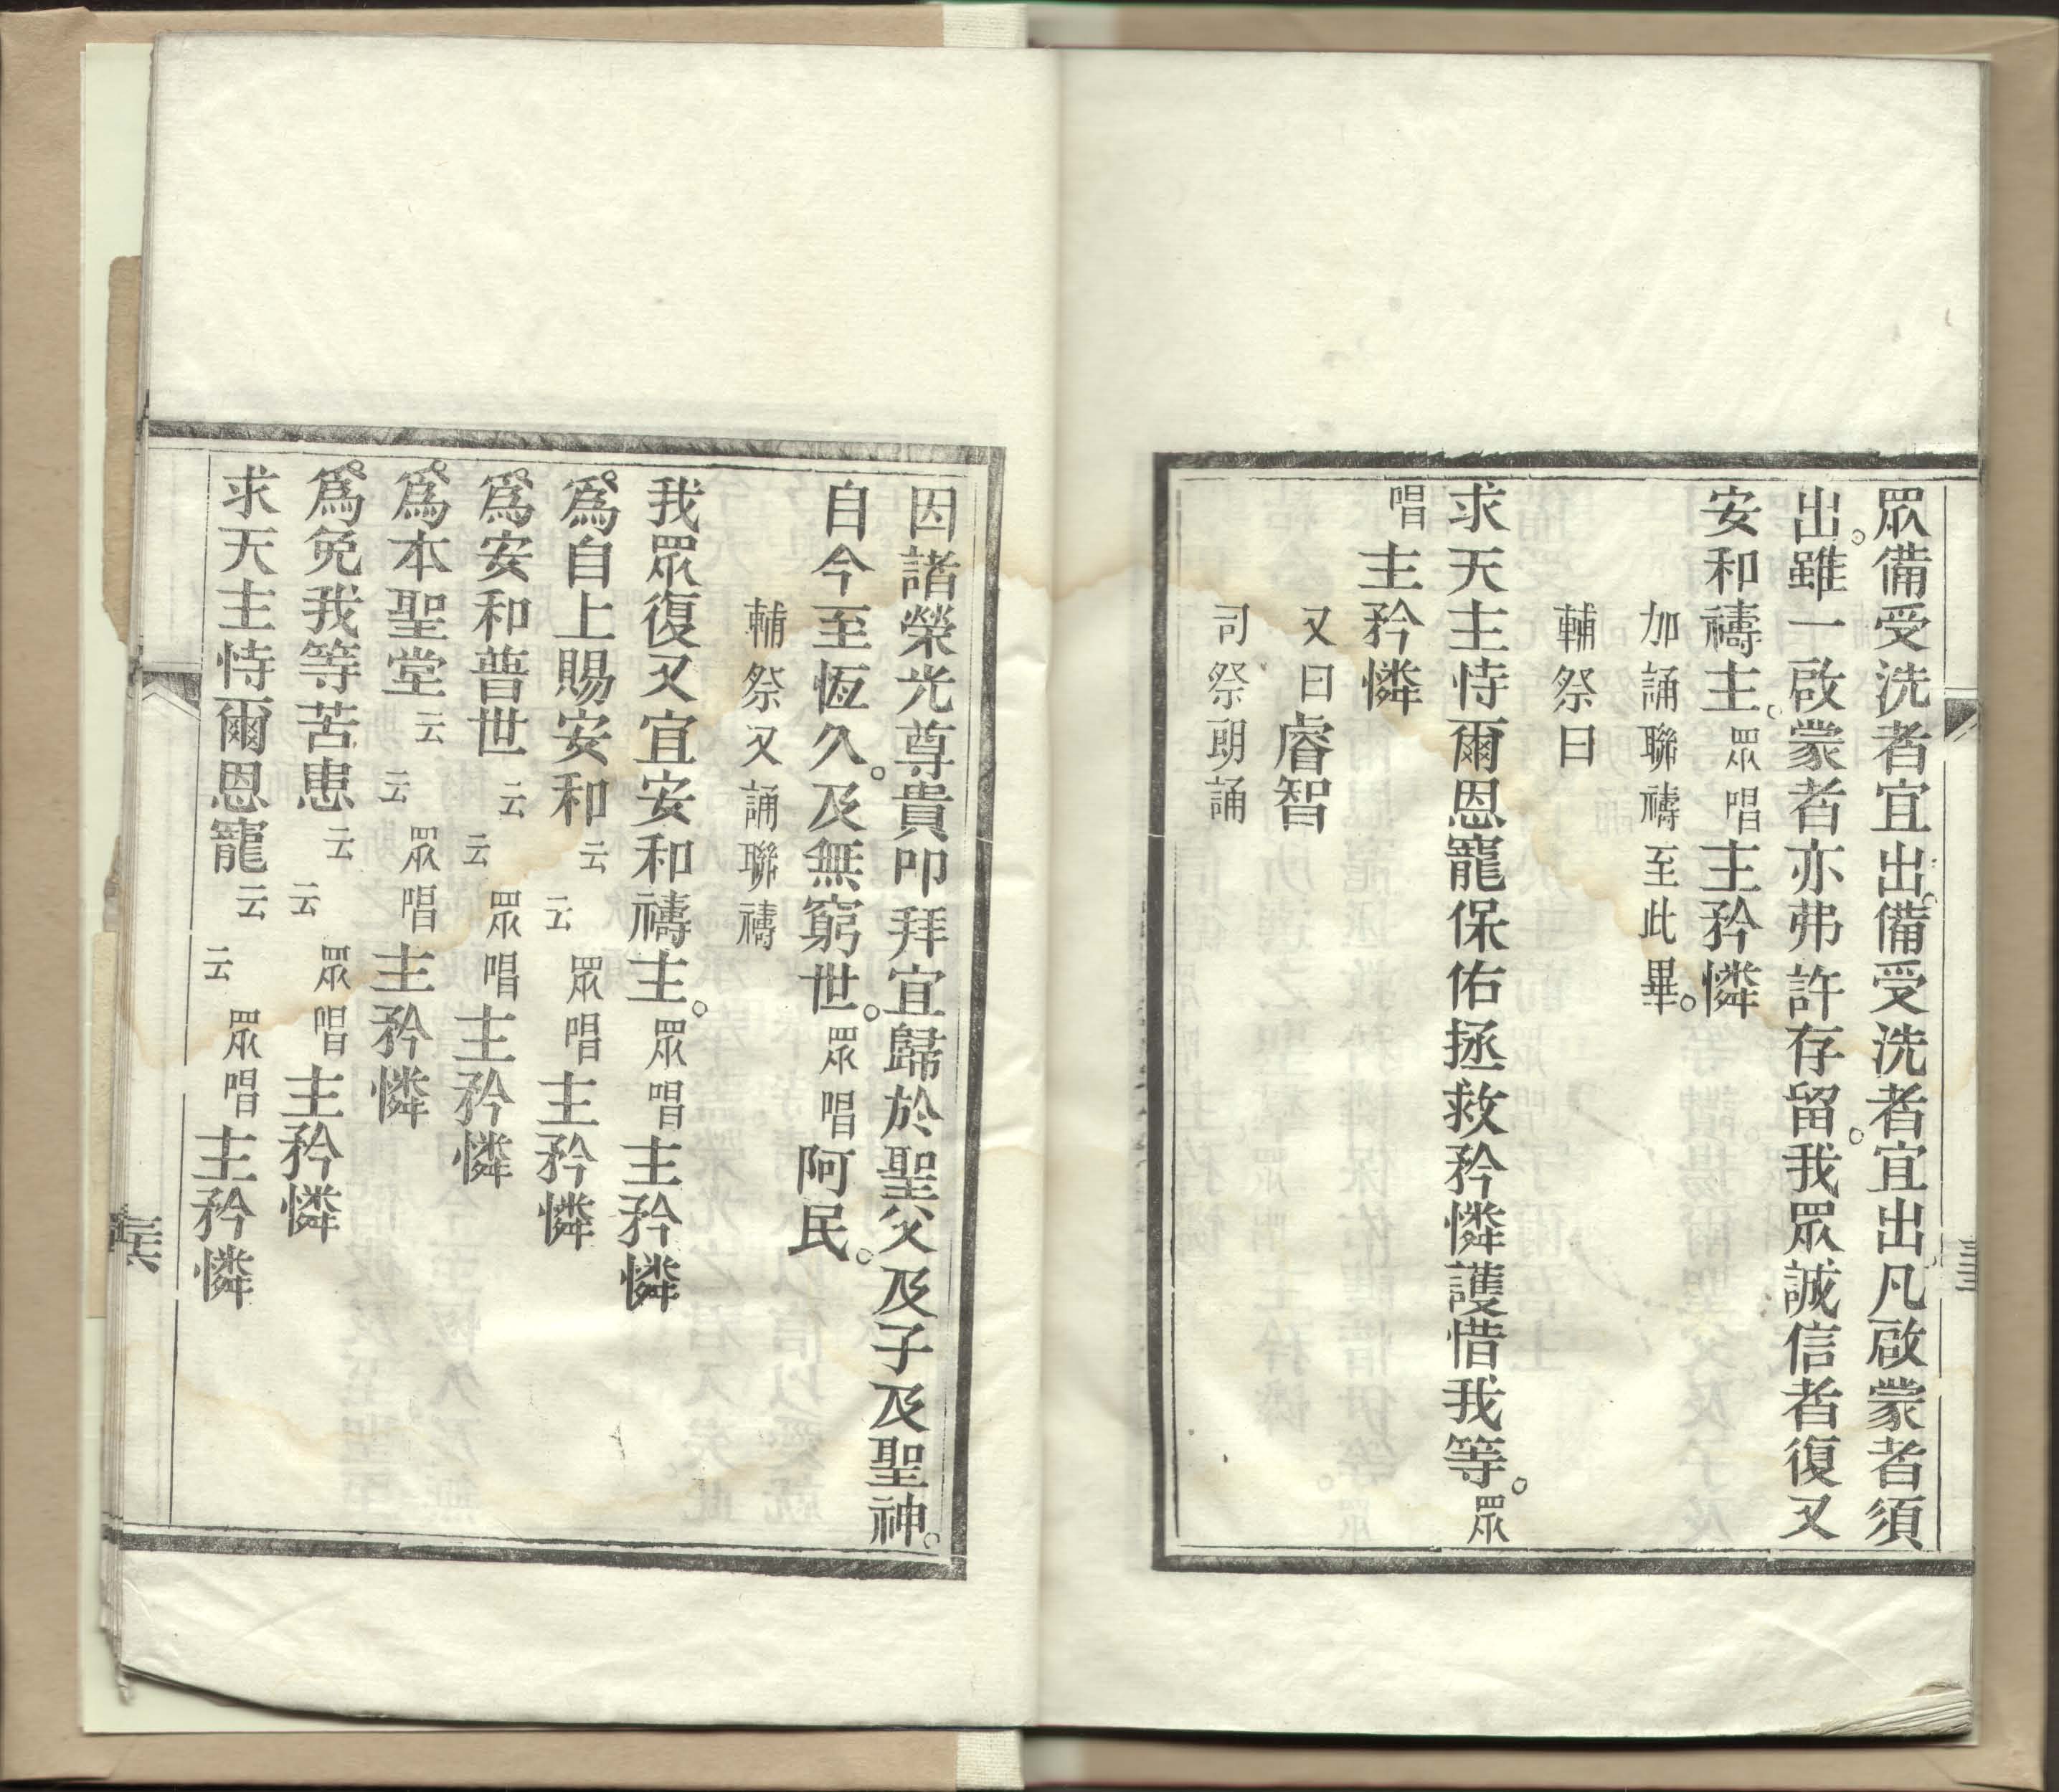 眾備受洗者宜出。備受洗者宜出凡啟蒙者須
出。雖一啟蒙者亦弗許存留。我眾誠信者復又
安和禱主。眾唱主矜憐
加誦聯禱至此畢。
輔祭曰
求天主恃爾恩寵保佑拯救矜憐護惜我等。眾
唱主矜憐
又曰睿智
司祭朗誦
因諸榮光尊貴叩拜宜歸於聖父及子及聖神。
自今至恆久。及無窮世。眾唱阿民。
輔祭又誦聯禱
我眾復又宜安和禱主。眾唱主矜憐
爲自上賜安和云云眾唱主矜憐
爲安和普世云云眾唱主矜憐
爲本聖堂云云眾唱主矜憐
爲免我等苦患云云眾唱主矜憐
求天主恃爾恩寵云云眾唱主矜憐